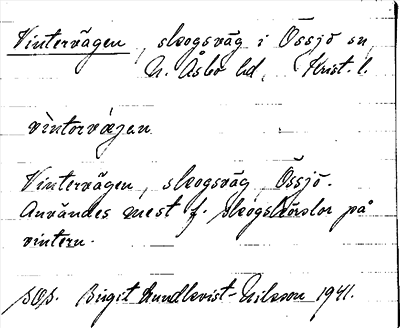 Vintervägen, skogsväg i Össjö sn,
N. Åsbo hd, Krist. l.
vìntorvǽgen
Vintervägen, skogsväg, Össjö.
Användes mest f. skogskörslor på
vintern.
Birgit Lundkvist-Nilsson 1941.